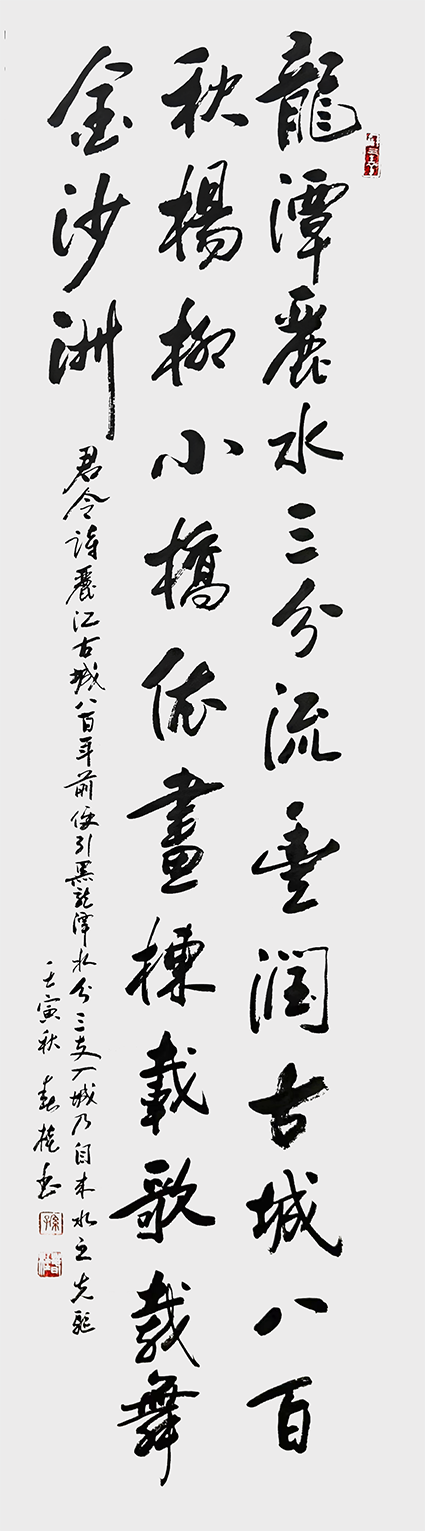 龍潭麗水三分流垂潤古城八百
秋楊柳小橋依畫棟載歌載舞
金沙洲
君令詩麗江古城八百年前便引黑龍潭水分三支入城乃自來水之先驅
壬寅秋春桂書